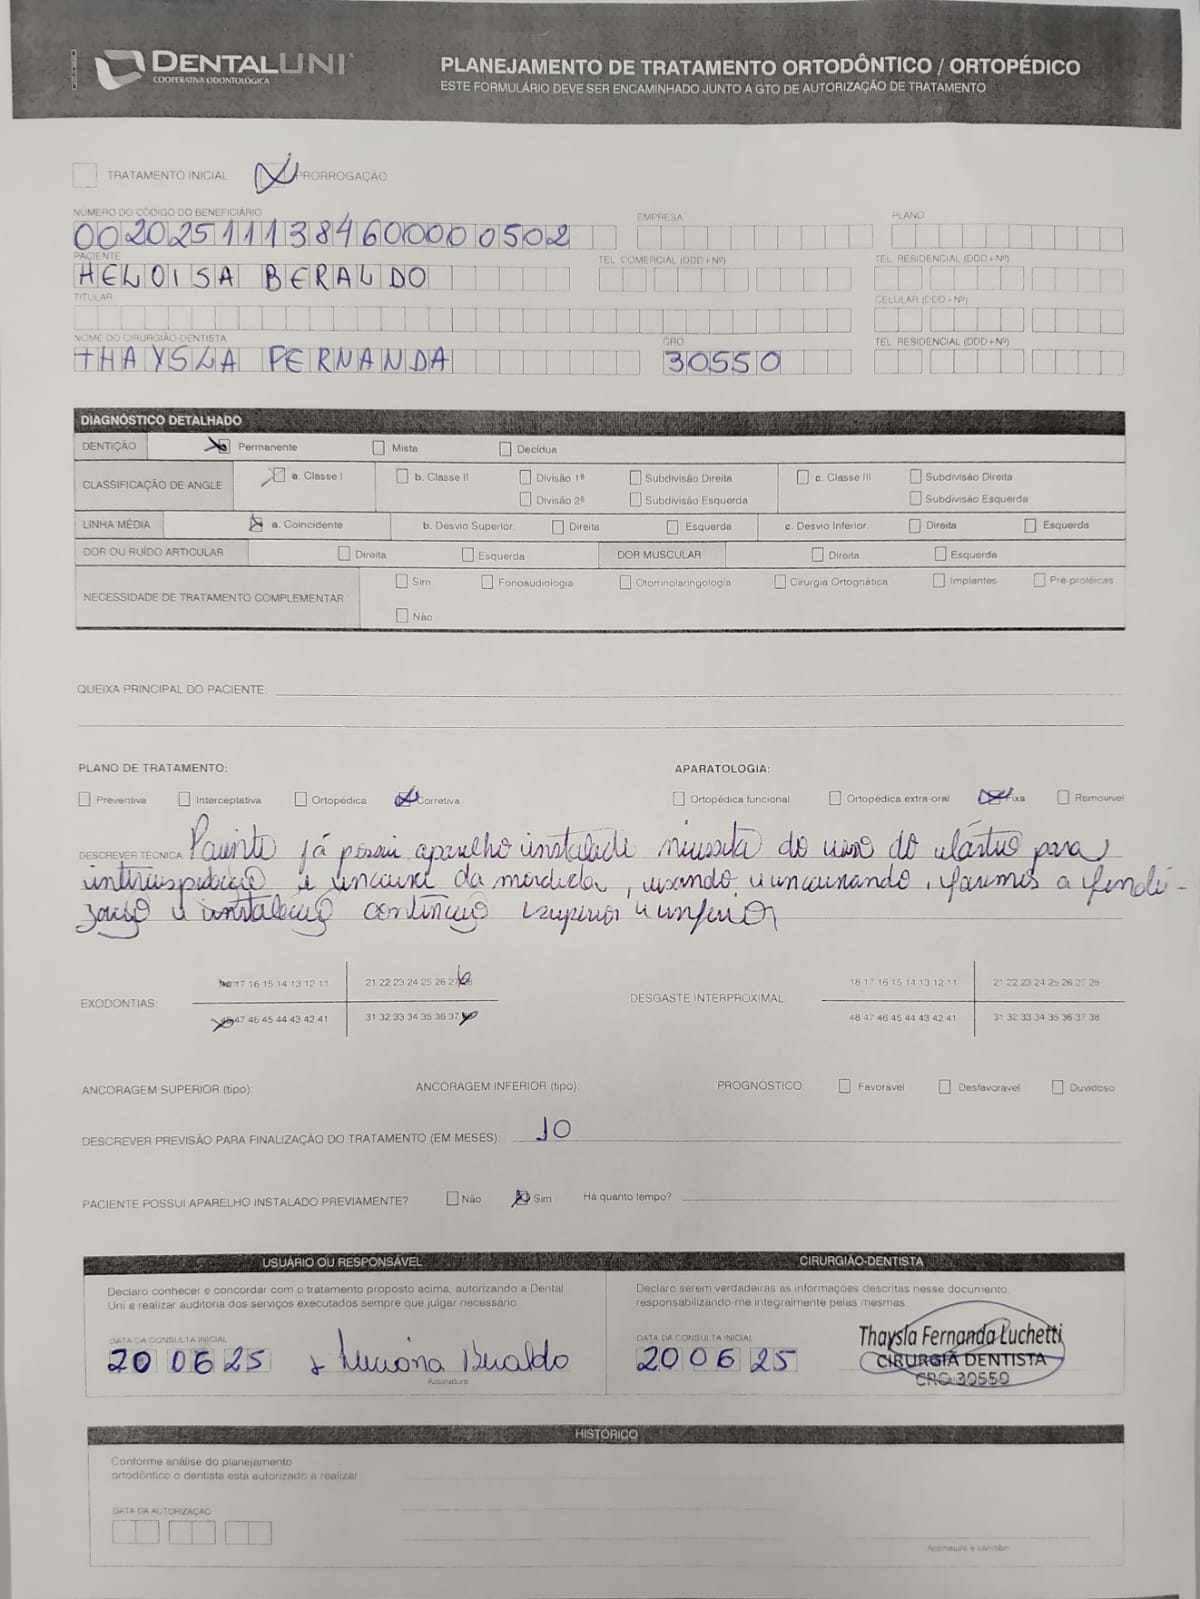 DENTALUNI
COOPERATIVA ODONTOLÓGICA
PLANEJAMENTO DE TRATAMENTO ORTODÔNTICO / ORTOPÉDICO
ESTE FORMULÁRIO DEVE SER ENCAMINHADO JUNTO A GTO DE AUTORIZAÇÃO DE TRATAMENTO
TRATAMENTO INICIAL PRORROGAÇÃO
NÚMERO DO CÓDIGO DO BENEFICIÁRIO EMPRESA PLANO
002025111384600000502
PACIENTE TEL. COMERCIAL (DDD + Nº) TEL. RESIDENCIAL (DDD + Nº)
HELOISA BERALDO
TITULAR CELULAR (DDD + Nº)
NOME DO CIRURGIÃO-DENTISTA CRO TEL. RESIDENCIAL (DDD + Nº)
THAYSLA FERNANDA 30550
DIAGNÓSTICO DETALHADO
DENTIÇÃO Permanente Mista Decídua
CLASSIFICAÇÃO DE ANGLE a. Classe I b. Classe II Divisão 1ª Subdivisão Direita c. Classe III Subdivisão Direita
Divisão 2ª Subdivisão Esquerda Subdivisão Esquerda
LINHA MÉDIA a. Coincidente b. Desvio Superior: Direita Esquerda c. Desvio Inferior: Direita Esquerda
DOR OU RUÍDO ARTICULAR Direita Esquerda DOR MUSCULAR Direita Esquerda
NECESSIDADE DE TRATAMENTO COMPLEMENTAR Sim Fonoaudiologia Otorrinolaringologia Cirurgia Ortognática Implantes Pré-protéicas
Não
QUEIXA PRINCIPAL DO PACIENTE:
PLANO DE TRATAMENTO: APARATOLOGIA:
Preventiva Interceptativa Ortopédica Corretiva Ortopédica funcional Ortopédica extra-oral Fixa Removível
DESCREVER TÉCNICA Paciente já possui aparelho instalado necessita do uso do elástico para
intercuspidação e encaixe da mordida, usando e encaixando, faremos a finali-
zação e instalação contenção superior e inferior
EXODONTIAS: 17 16 15 14 13 12 11 21 22 23 24 25 26 27 DESGASTE INTERPROXIMAL 18 17 16 15 14 13 12 11 21 22 23 24 25 26 27 28
47 46 45 44 43 42 41 31 32 33 34 35 36 37 48 47 46 45 44 43 42 41 31 32 33 34 35 36 37 38
ANCORAGEM SUPERIOR (tipo): ANCORAGEM INFERIOR (tipo): PROGNÓSTICO: Favorável Desfavorável Duvidoso
DESCREVER PREVISÃO PARA FINALIZAÇÃO DO TRATAMENTO (EM MESES): 10
PACIENTE POSSUI APARELHO INSTALADO PREVIAMENTE? Não Sim Há quanto tempo?
USUÁRIO OU RESPONSÁVEL CIRURGIÃO-DENTISTA
Declaro conhecer e concordar com o tratamento proposto acima, autorizando a Dental
Uni a realizar auditoria dos serviços executados sempre que julgar necessário
Declaro serem verdadeiras as informações descritas nesse documento,
responsabilizando-me integralmente pelas mesmas.
DATA DA CONSULTA INICIAL
20 06 25 Luciana Beraldo
Assinatura
DATA DA CONSULTA INICIAL
20 06 25
Thaysla Fernanda Luchetti
CIRURGIÃ DENTISTA
CRO 30550
HISTÓRICO
Conforme análise do planejamento
ortodôntico o dentista está autorizado a realizar:
DATA DA AUTORIZAÇÃO
Assinatura e carimbo